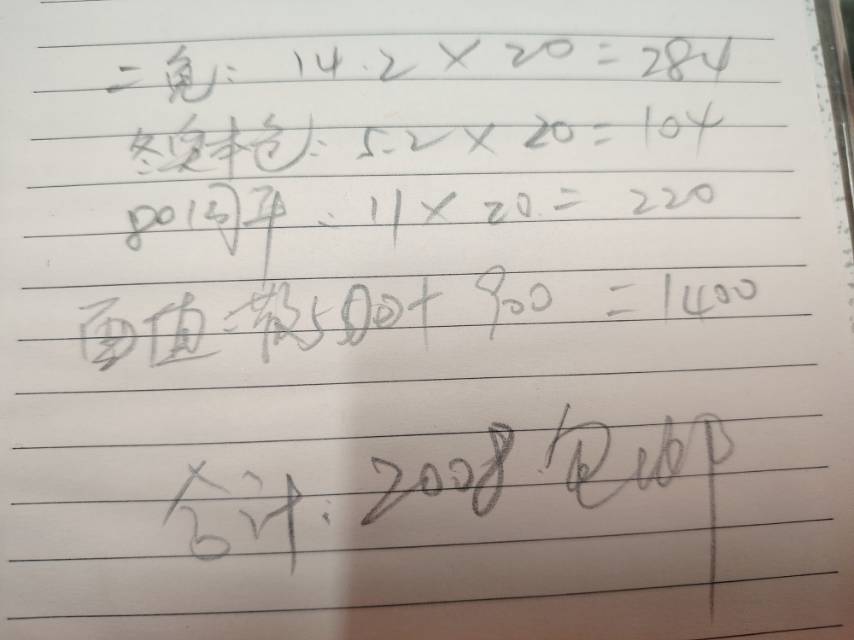 二兔: 14.2×20=284
冬奥本色: 5.2×20=104
80同平: 11×20=220
面值:散500+900=1400
合计:2008包邮